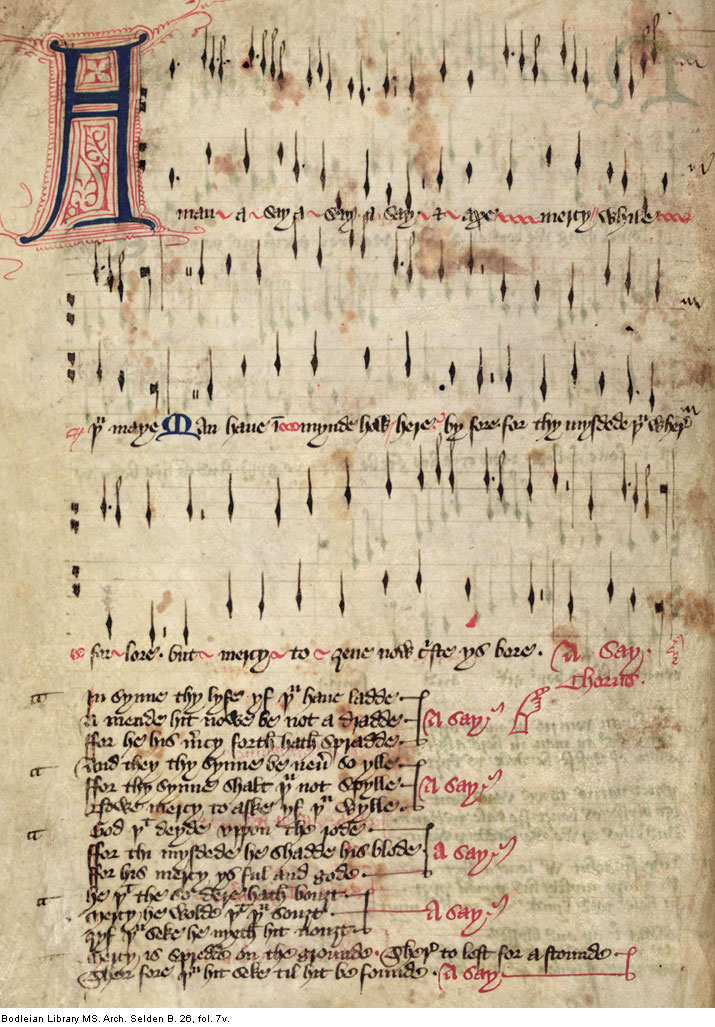 A man a say a say a say & axe mercy while
þᵘ maye Man have ī mynde how here by fore for thy mysdede þᵘ wher
for lore but mercy to geve now crste ys bore. A Say
Chorus
In synne thy lyfe yf þᵘ have ladde
A mende hit nowe be not a dradde A Say
ffor he his mrcy forth hath spradde
And they thy synne be nevr so ylle
ffor thy synne shalt þᵘ not spylle A Say
Nowe mercy to aske yf þᵘ wylle
God þᵗ deyde uppon the rode
ffor thi mysdede he shadde his blode A Say
ffor his mercy ys ful and gode
he þᵗ the so dere hath bouzt
mercy he wolde þᵗ þᵘ souzt A Say
zyf þᵘ seke he nyeth hit nouzt
Mercy is spredde on the grounde
Ther fore þᵘ hit seke til hit be founde A Say
Bodleian Library MS. Arch. Selden B. 26, fol. 7v.